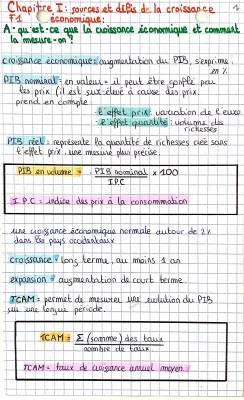 Chapitre I : sources et défis de la croissance
F1 économique :
A - qu'est-ce que la croissance économique et comment
la mesure-on ?
croissance économique : augmentation du PIB, s'exprime
en %
PIB nominal : en valeur = il peut être gonflé par
les prix (il est sur-élevé à cause des prix.
prend en compte
- l'effet prix : variation de l'euro
- l'effet quantité : volume des
richesses
PIB réel : représente la quantité de richesses créée sans
l'effet prix. une mesure plus précise
PIB en volume = PIB nominal x 100
IPC
IPC = indice des prix à la consommation
une croissance économique normale autour de 2%
dans les pays occidentaux
croissance = long terme, au moins 1 an
expansion = augmentation de court terme
TCAM = permet de mesurer une évolution du PIB
sur une longue période.
TCAM = Σ (somme) des taux
nombre de taux
TCAM = taux de croissance annuel moyen